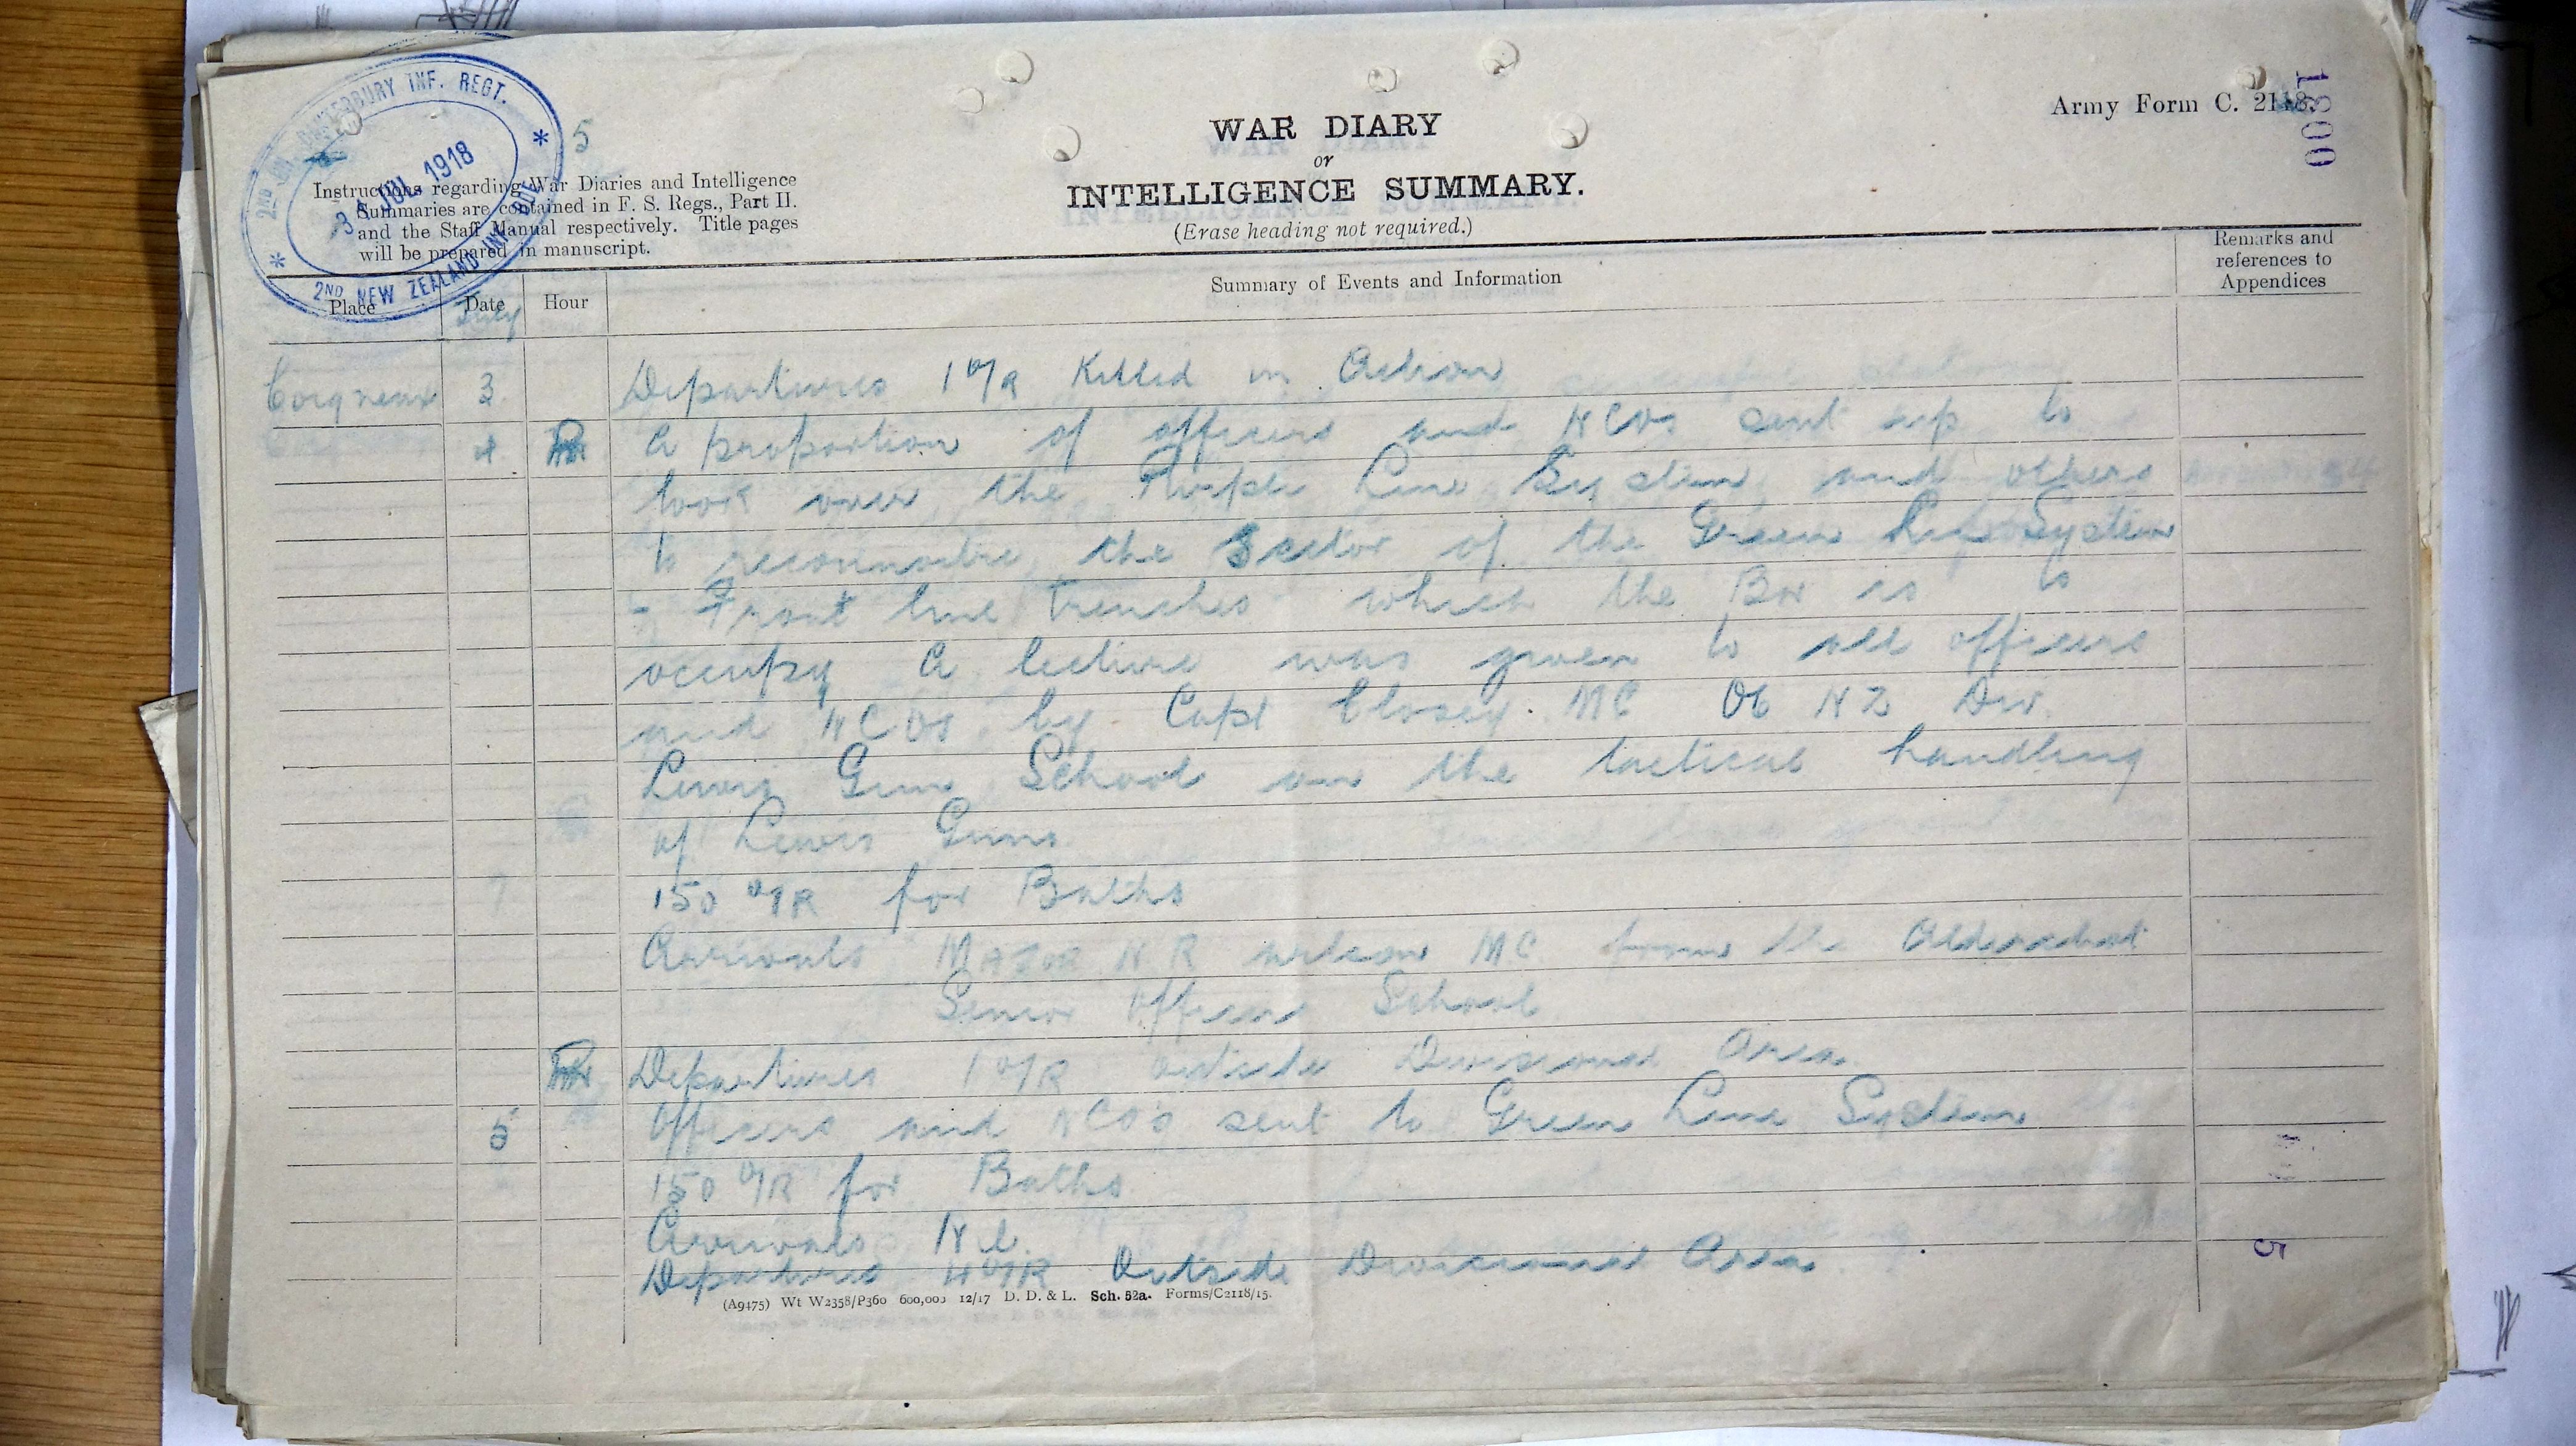 2ND BN. CANTERBURY INF. REGT.
31 JUL 1918
2ND NEW ZEALAND INF. BDE
5
Army Form C. 2118.
0031
WAR DIARY
or
INTELLIGENCE SUMMARY.
(Erase heading not required.)
Instructions regarding War Diaries and Intelligence
Summaries are contained in F. S. Regs., Part II.
and the Staff Manual respectively. Title pages
will be prepared in manuscript.
Place Date Hour Summary of Events and Information Remarks and references to Appendices
July
Coigneux 3 Departures 1 O/R Killed in Action
4 A proportion of officers and NCOs sent up to
look over the Purple Line System and others
to reconnoitre the Sector of the Green Line System
- Front line trenches which the Bn is to
occupy A lecture was given to all officers
and NCOs by Capt Closey MC OC NZ Div
Lewis Gun School on the tactical handling
of Lewis Guns
150 O/R for Baths
Arrivals MAJOR N R Wilson MC from the Aldershot
Senior Officers School
Departures 1 O/R outside Divisional Area
5 Officers and NCO's sent to Green Line System
150 O/R for Baths
Arrivals Nil
Departures 4 O/R Outside Divisional Area
5
(A9475) Wt W2358/P360 600,000 12/17 D. D. & L. Sch. 52a. Forms/C2118/15.